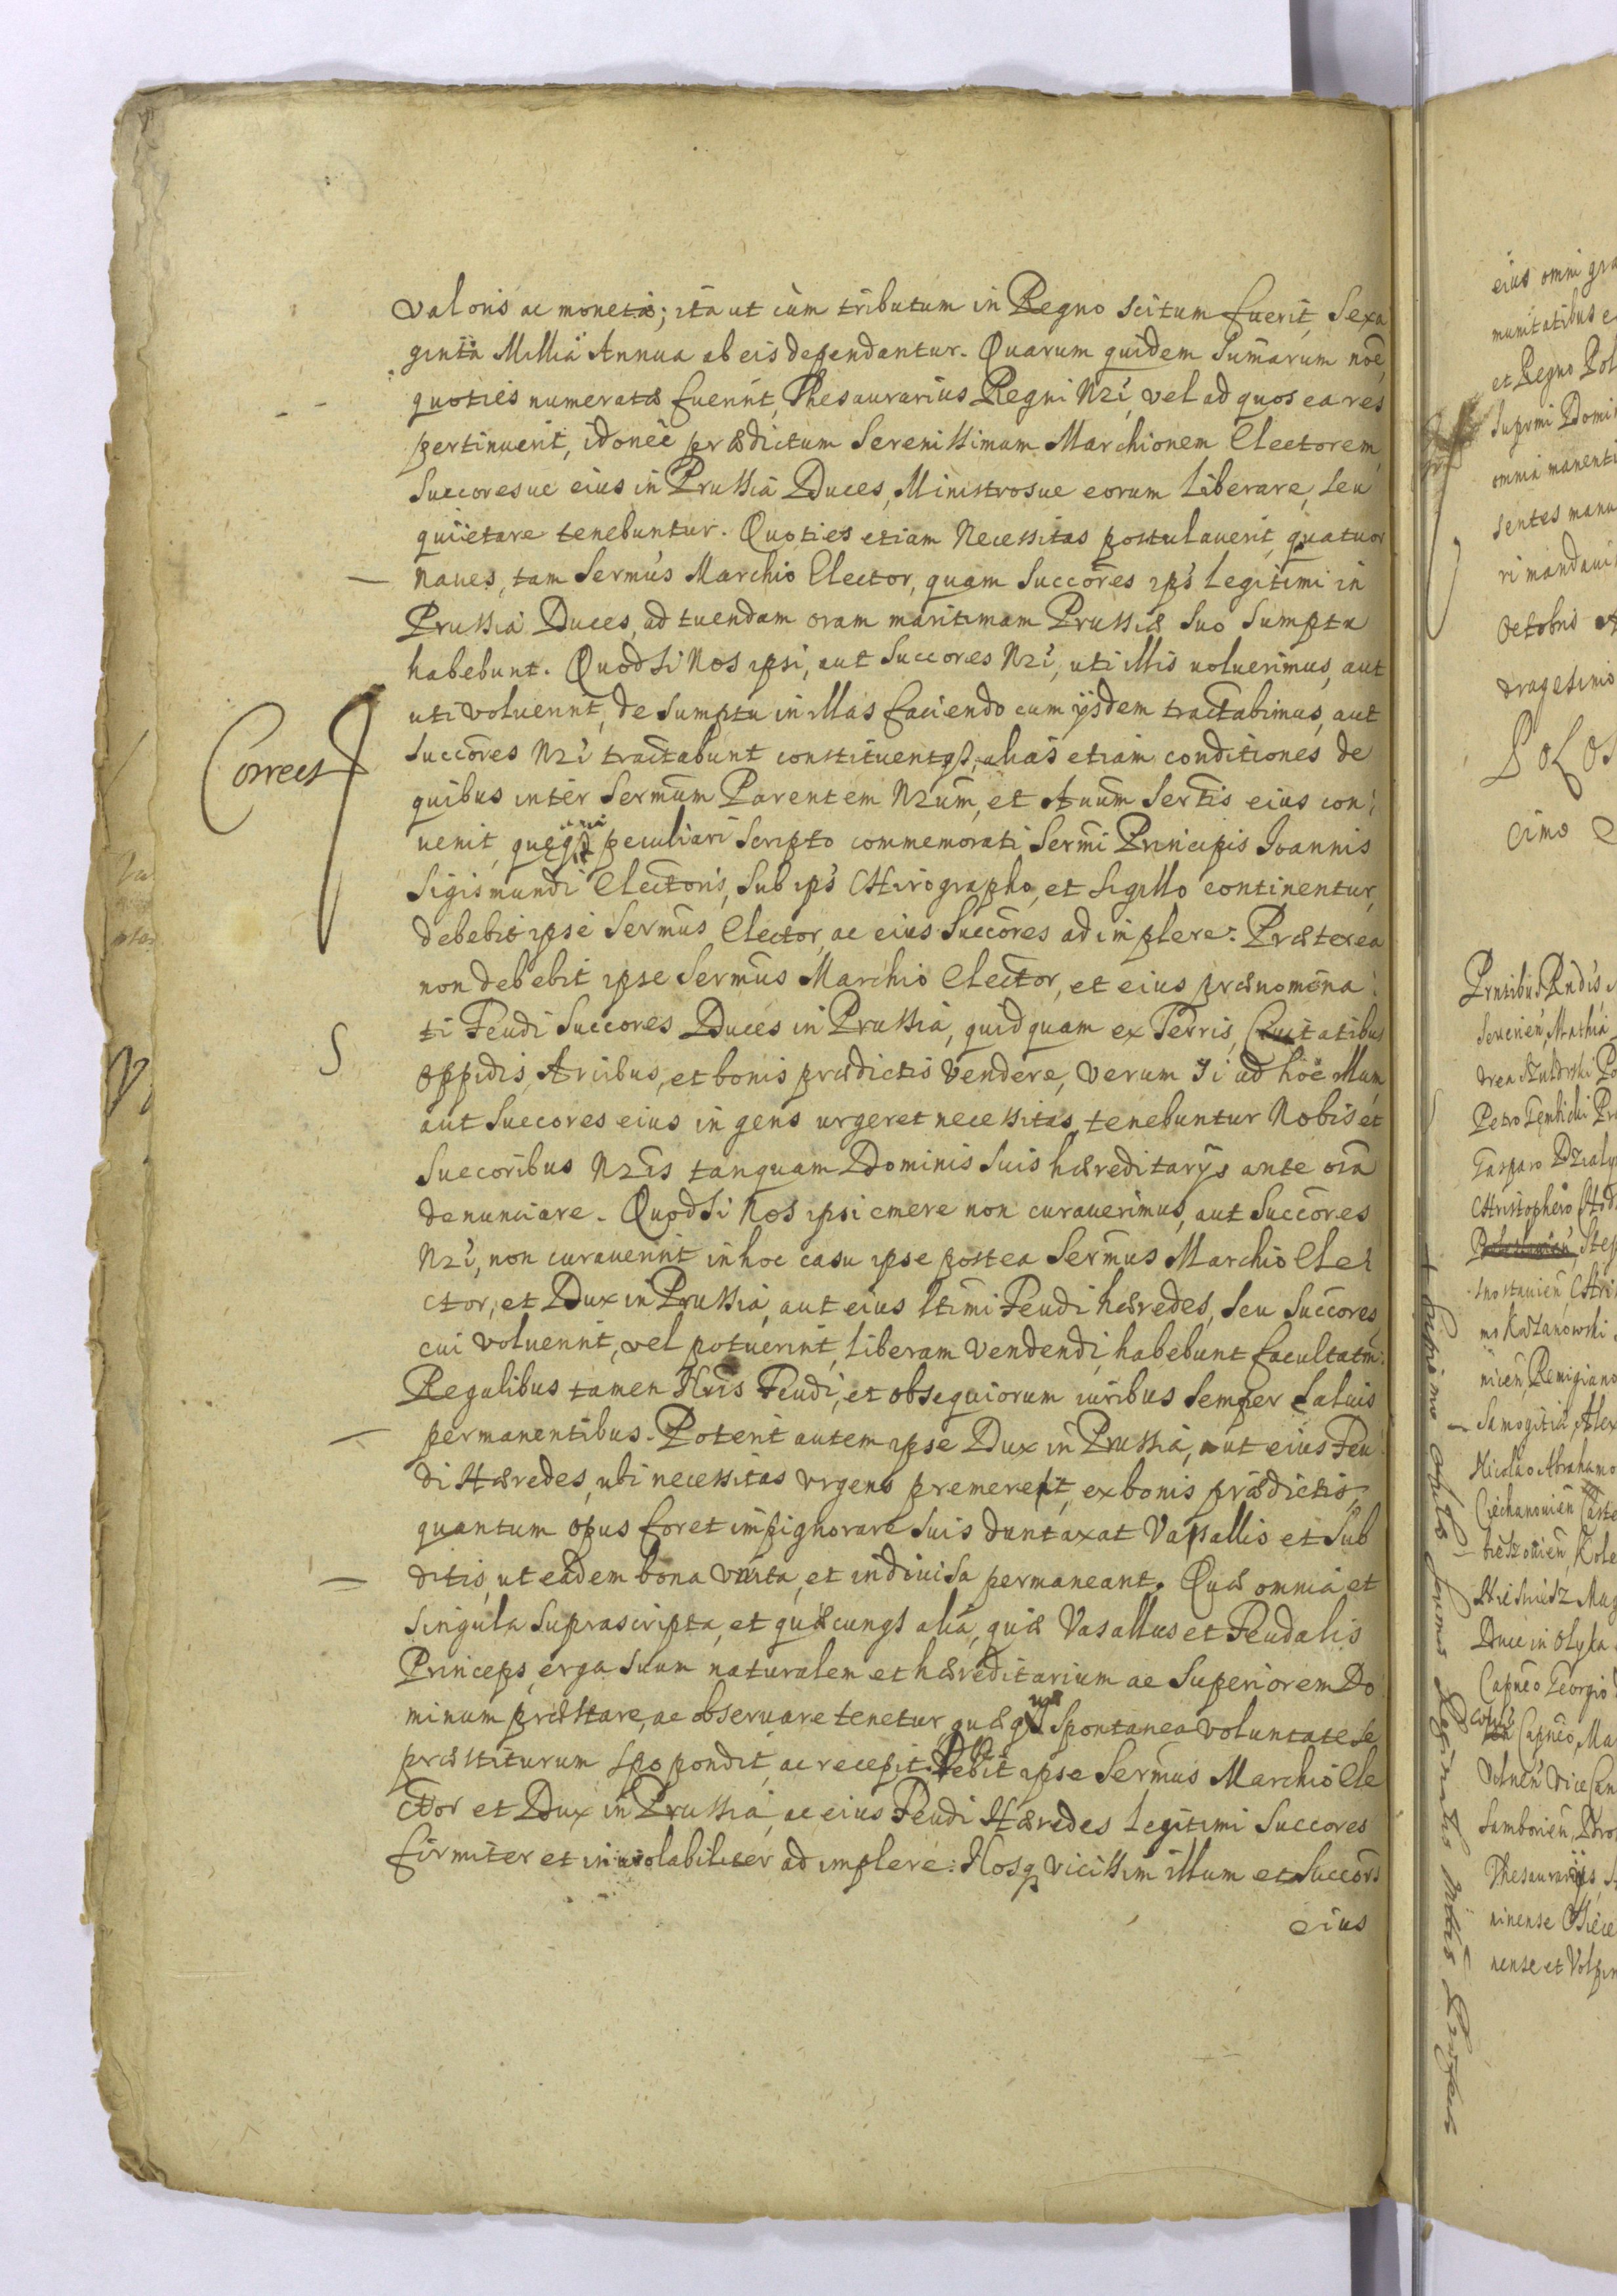 valoris ac monetæ; ita ut cùm tributum in Regno scitum fuerit, Sexa
ginta Millia Annua ab eis dependantur. Quarum quidem Sumarum noē,
quoties numeratæ fuerint, Thesaurarius Regni Nri, vel ad quos ea res
pertinuerit, idonee prædictum Serenissimum Marchionem Electorem,
Succoresue eius in Prussia Duces, Ministrosue eorum liberare, seu
quietare tenebuntur. Quoties etiam Necessitas postulauerit, quatuor
Naues, tam Sermus Marchio Elector, quam Succores ips Legitimi in
Prussia Duces, ad tuendam oram maritimam Prussiæ suo Sumptu
habebunt. Quodsi Nos ipsi, aut Succores Nri, uti illis voluerimus, aut
uti voluerint, de Sumptu in illas faciendo cum ijsdem tractabimus, aut
Correct
Succores Nri tractabunt constituentq, alias etiam conditiones de
quibus inter Sermum Parentem Nrum, et Auum Sertis eius con:
uenit, quęq peculiari Scripto commemorati Sermi Principis Joannis
Sigismundi Electoris, Sub ips Chirographo, et Sigillo continentur,
debebit ipse Sermus Elector, ac eius Succores adimplere. Præterea
non debebit ipse Sermus Marchio Elector, et eius prænomina:
ti Feudi Succores Duces in Prussia, quidquam ex Terris, Ciuitatibus
oppidis, Arcibus, et bonis prædictis Vendere, verum si ad hoc illum,
aut Succores eius ingens urgeret necessitas, tenebuntur Nobis et
Succoribus Nris tanquam Dominis suis hæreditarijs ante oia
denunciare. Quodsi Nos ipsi emere non curauerimus, aut Succores
Nri, non curauerint in hoc casu ipse postea Sermus Marchio Ele:
ctor, et Dux in Prussia, aut eius ltimi Feudi hæredes, seu Succores
cui voluerint, vel potuerint, liberam Vendendi habebunt facultatm:
Regalibus tamen Nris Feudi, et obsequiorum iuribus semper saluis
permanentibus. Poterit autem ipse Dux in Prussia, aut eius Feu
di Hæredes, ubi necessitas vrgens premeret, ex bonis prædictis,
quantum opus foret impignorare suis duntaxat Vasallis et Sub
ditis, ut eadem bona vnita, et indiuisa permaneant. Quæ omnia et
Singula Suprascripta, et quæcunq alia, quæ Vasallus et Feudalis
Princeps, erga suum naturalem et hæreditarium ac Superiorem Do
minum præstare, ac obseruare tenetur quæq Spontanea voluntate se
præstiturum spopondit, ac recepit. Debebit ipse Sermus Marchio Ele
ctor et Dux in Prussia, ac eius Feudi Hæredes Legitimi Succores
firmiter et inuiolabiliter adimplere. Nosq vicissim illum et Succors
eius